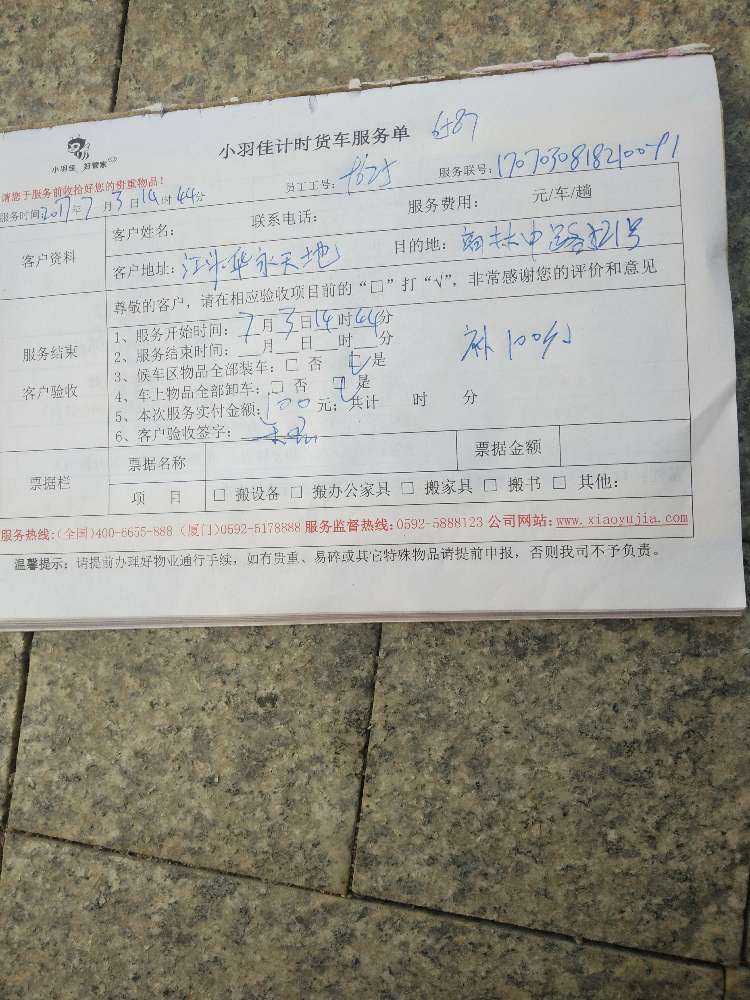 小羽佳计时货车服务单 6587
小羽佳 好管家
请您于服务前收拾好您的贵重物品!
员工工号: 服务联号: 17070308182100791
服务时间2017年7月3日14时44分
客户资料
客户姓名: 联系电话: 服务费用: 元/车/趟
客户地址: 天地 目的地: 中路 号
尊敬的客户,请在相应验收项目前的“□”打“√”,非常感谢您的评价和意见
服务结束
客户验收
1、服务开始时间:7月3日14时44分
2、服务结束时间:__月__日__时__分
3、候车区物品全部装车:□ 否 □是
4、车上物品全部卸车:□ 否 □是
补100分
5、本次服务实付金额:100元;共计 时 分
6、客户验收签字:
票据栏
票据名称 票据金额
项 目 □ 搬设备 □ 搬办公家具 □ 搬家具 □ 搬书 □ 其他:
服务热线:(全国)400-6655-888 (厦门)0592-5178888 服务监督热线:0592-5888123 公司网站:www.xiaoyujia.com
温馨提示:请提前办理好物业通行手续,如有贵重、易碎或其它特殊物品请提前申报,否则我司不予负责。